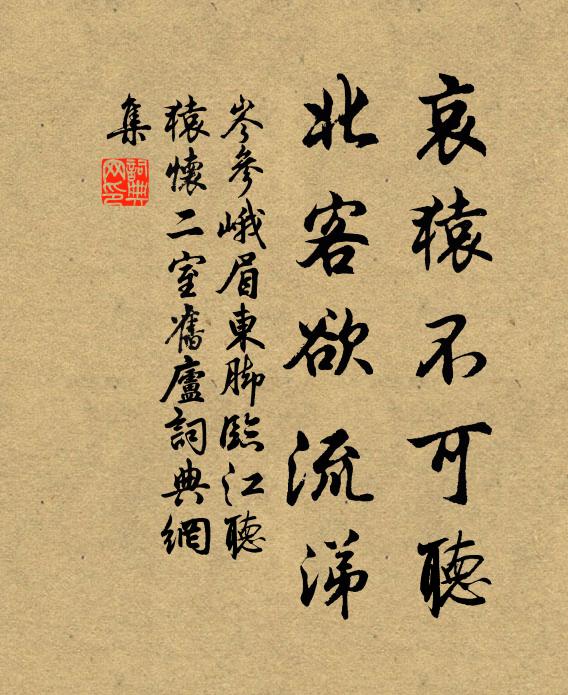 哀猿不可聽
北客欲流涕
岑參峨眉東脚臨江聽
猿懷二室舊廬詞典網
集
詞典
网印